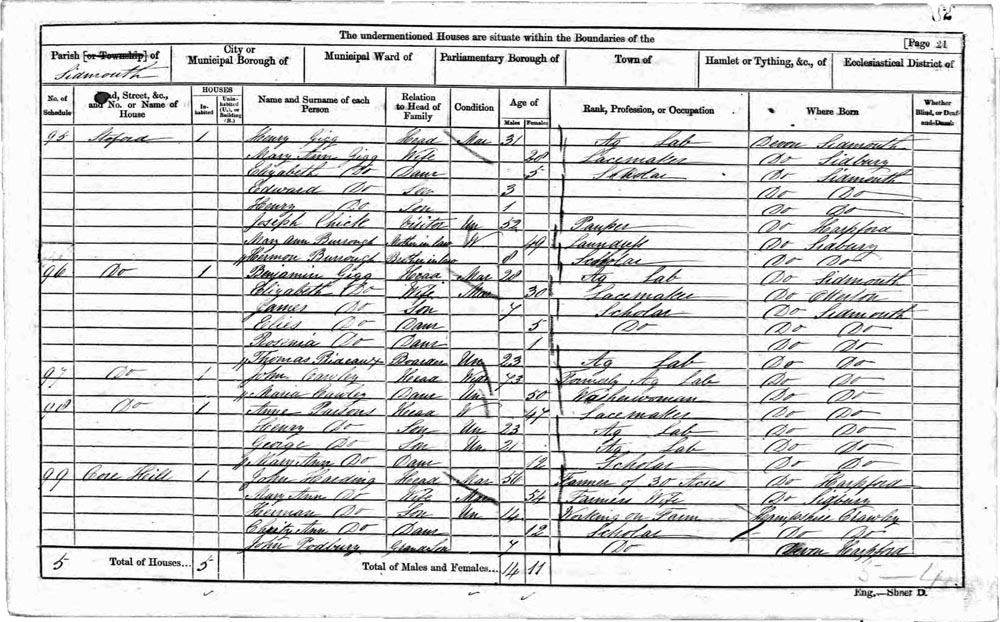 82
The undermentioned Houses are situate within the Boundaries of the
[Page 21
Parish [or Township] of Sidmouth
City or Municipal Borough of
Municipal Ward of
Parliamentary Borough of
Town of
Hamlet or Tything, &c., of
Ecclesiastical District of
No. of Schedule
Road, Street, &c., and No. or Name of House
HOUSES
Inhabited
Uninhabited (U.), or Building (B.)
Name and Surname of each Person
Relation to Head of Family
Condition
Age of
Males
Females
Rank, Profession, or Occupation
Where Born
Whether Blind, or Deaf-and-Dumb
95 Stoford 1 Henry Gigg Head Mar 31 Ag Lab Devon Sidmouth
Mary Ann Gigg Wife 28 Lacemaker Do Sidbury
Elizabeth Do Daur 5 Scholar Do Sidmouth
Edward Do Son 3 Do Do
Henry Do Son 1 Do Do
Joseph Chick Visitor Un 52 Pauper Do Harpford
Mary Ann Burrough Mother in law W 49 Laundress Do Sidbury
Hermon Burrough Brother in law 8 Scholar Do Do
96 Do 1 Benjamin Gigg Head Mar 28 Ag Lab Do Sidmouth
Elizabeth Do Wife Mar 30 Lacemaker Do Otterton
James Do Son 7 Scholar Do Sidmouth
Do Daur 5 Do Do Do
Rosinia Do Daur 1 Do Do
Thomas Boarder Un 23 Ag Lab Do Do
97 Do 1 John Cawley Head Widr 73 Formerly Ag Lab Do Do
Maria Cawley Daur Un 50 Washerwoman Do Do
98 Do 1 Anne Parsons Head W 47 Lacemaker Do Do
Henry Do Son Un 23 Ag Lab Do Do
George Do Son Un 21 Ag Lab Do Do
Mary Ann Do Daur 12 Scholar Do Do
99 Core Hill 1 John Harding Head Mar 56 Farmer of 30 Acres Do Harpford
Mary Ann Do Wife Mar 54 Farmers Wife Do Sidbury
Herman Do Son Un 14 Working on Farm Hampshire Crawley
Charity Ann Do Daur 12 Scholar Do Do
John Podbury Grandson 7 Do Devon Harpford
5 Total of Houses... 5 Total of Males and Females... 14 11
5-4
Eng.—Sheet D.